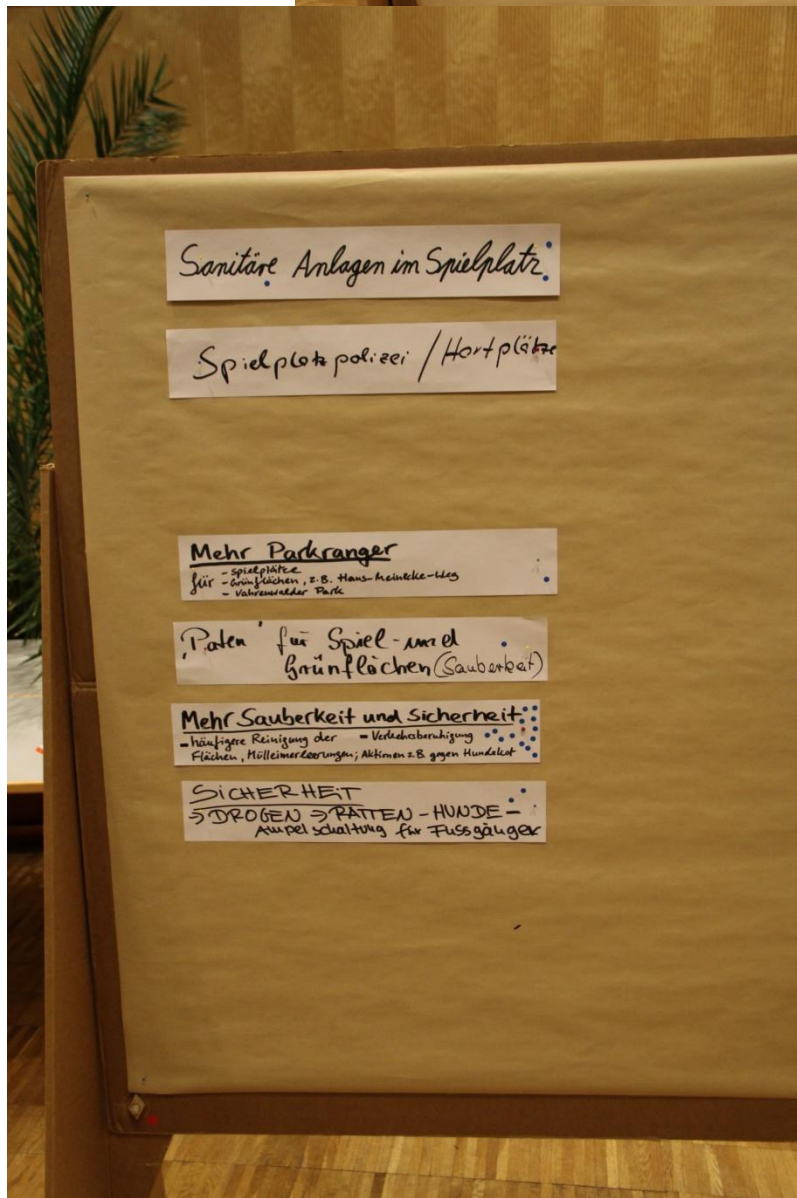 Sanitäre Anlagen im Spielplatz
Spielplatzpolizei / Hortplätze
Mehr Parkranger
für - Spielplätze
- Grünflächen, z.B. Hans-Meinecke-Weg
- Vahrenwalder Park
"Paten" für Spiel- und
Grünflächen (Sauberkeit)
Mehr Sauberkeit und Sicherheit
- häufigere Reinigung der - Verkehrsberuhigung
Flächen, Mülleimerleerungen; Aktionen z.B gegen Hundekot
SiCHERHEiT
→ DROGEN → RATTEN - HUNDE -
Ampelschaltung für Fussgänger